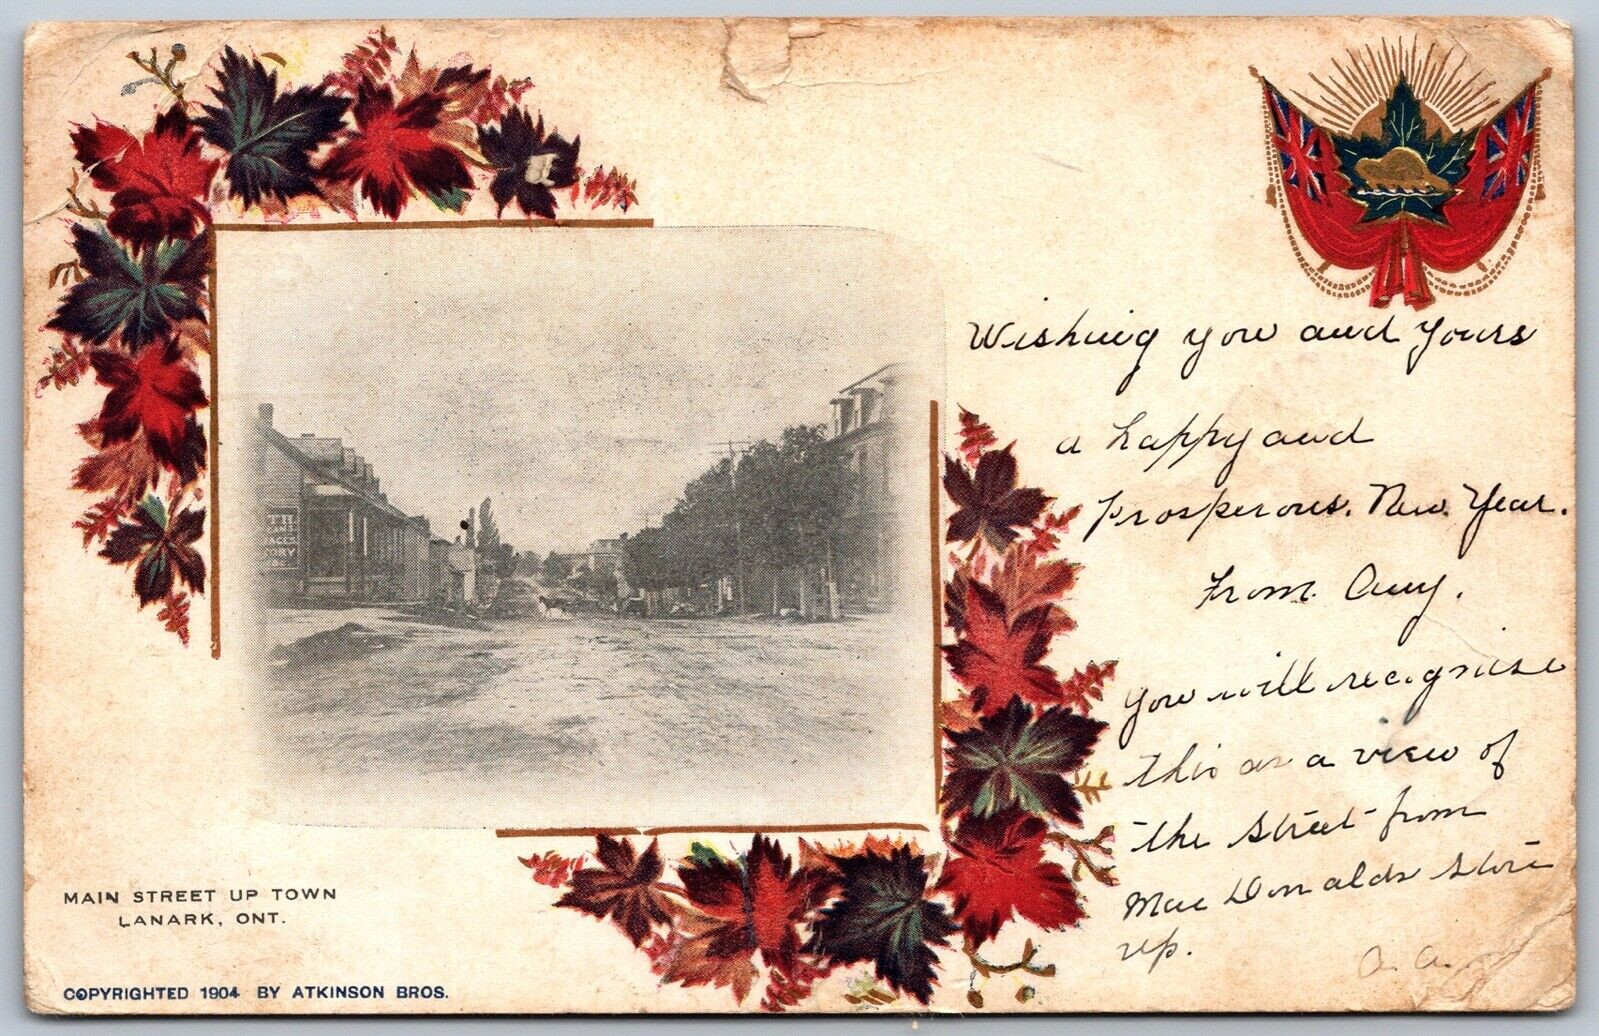 Wishing you and yours
a happy and
prosperous. New. Year.
From. Amy.
You will recognise
this as a view of
the street from
MacDonalds store
up.
a. a.
TH
ORY
MAIN STREET UP TOWN
LANARK, ONT.
COPYRIGHTED 1904 BY ATKINSON BROS.